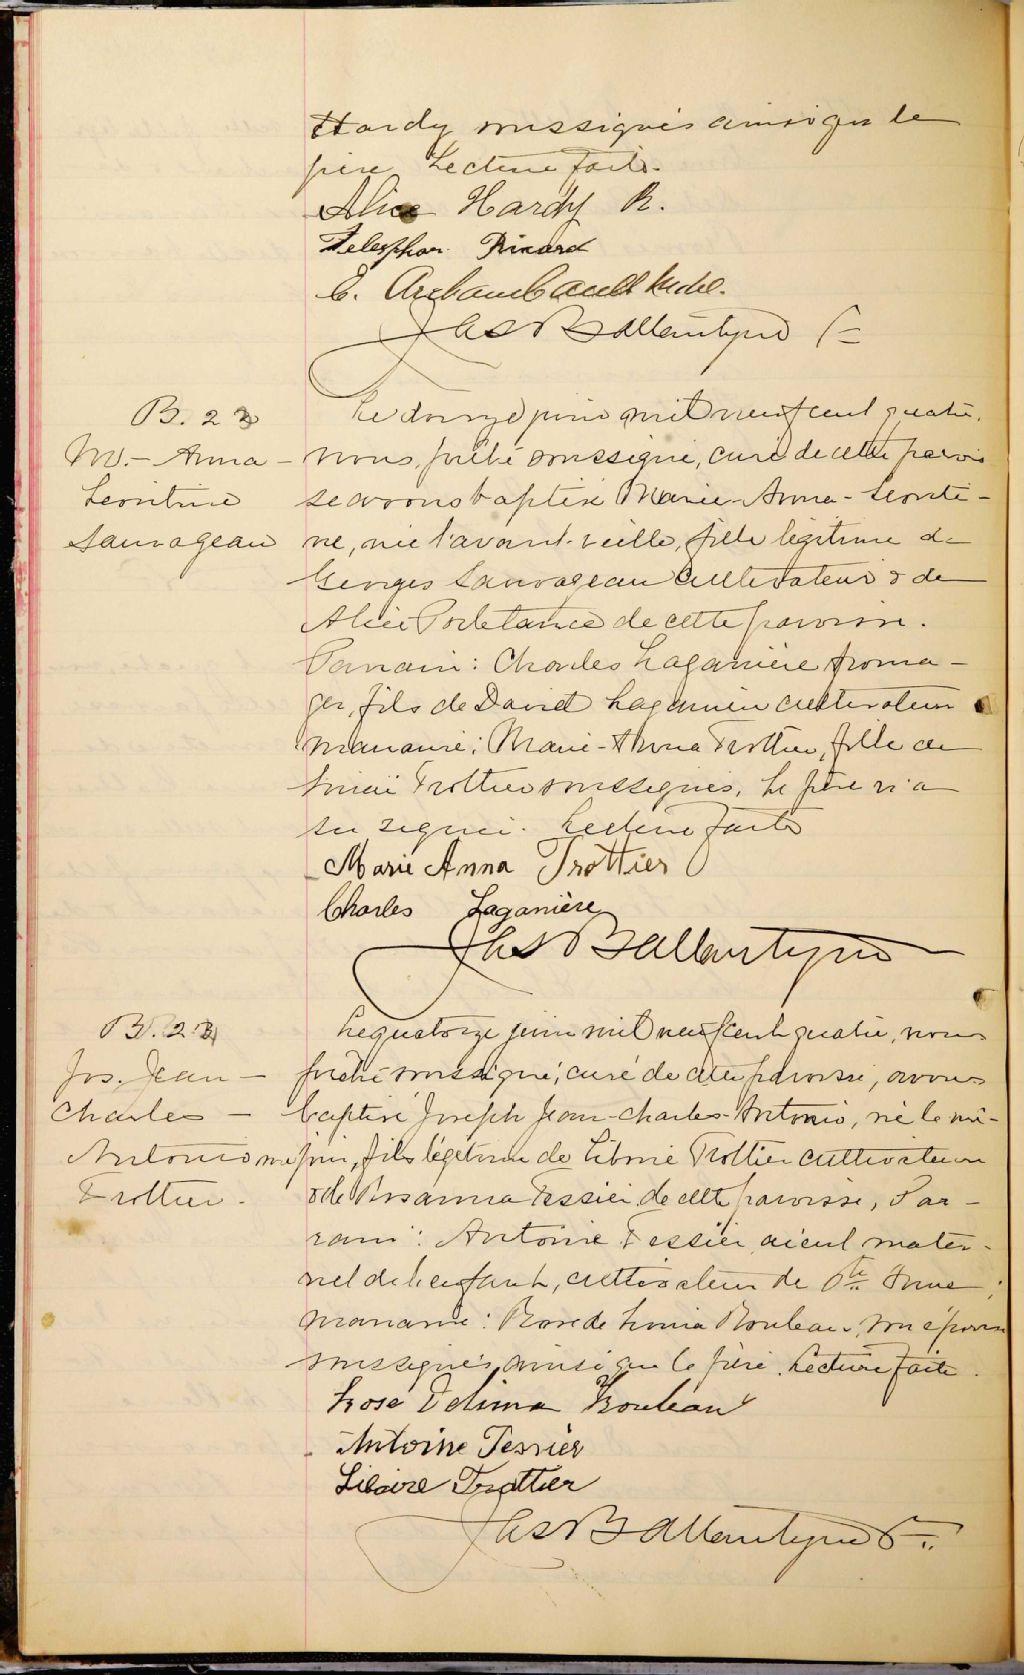 Hardy soussignés ainsi que le
père Lecture faite.
Alice Hardy R.
Telesphor Ricard
E. Archambault
Jos Ballantyne
B. 22
M.- Anna
Leontine
Sauvageau
Le douze juin mil neuf cent quatre,
nous, prêtre soussigné, curé de cette parois
se avons baptisé Marie-Anna-Leonti-
ne, née l'avant-veille, fille légitime de
Georges Sauvageau cultivateur & de
Alice Portelance de cette paroisse.
Parrain: Charles Laganière froma-
ger, fils de David Laganière cultivateur
marraine; Marie-Anna Trottier, fille de
Trottier soussignés, Le père n'a
su signer. Lecture faite
Marie Anna Trottier
Charles Laganière
Jos Ballantyne
B. 23
Jos. Jean-
Charles-
Antonio
Trottier.
Le quatorze juin mil neuf cent quatre, nous
prêtre soussigné, curé de cette paroisse, avons
baptisé Joseph Jean-Charles-Antonio, né le mê-
me jour, fils légitime de Trottier cultivateur
& de Rosanna Tessier de cette paroisse, Par-
rain: Antoine Tessier aieul mater-
nel de l'enfant, cultivateur de Ste Anne;
marraine: Rose de Lima Rouleau, son épouse
soussignés ainsi que le père. Lecture faite.
Rose Delima Rouleau
Antoine Tessier
Trottier
Jos Ballantyne Ptre